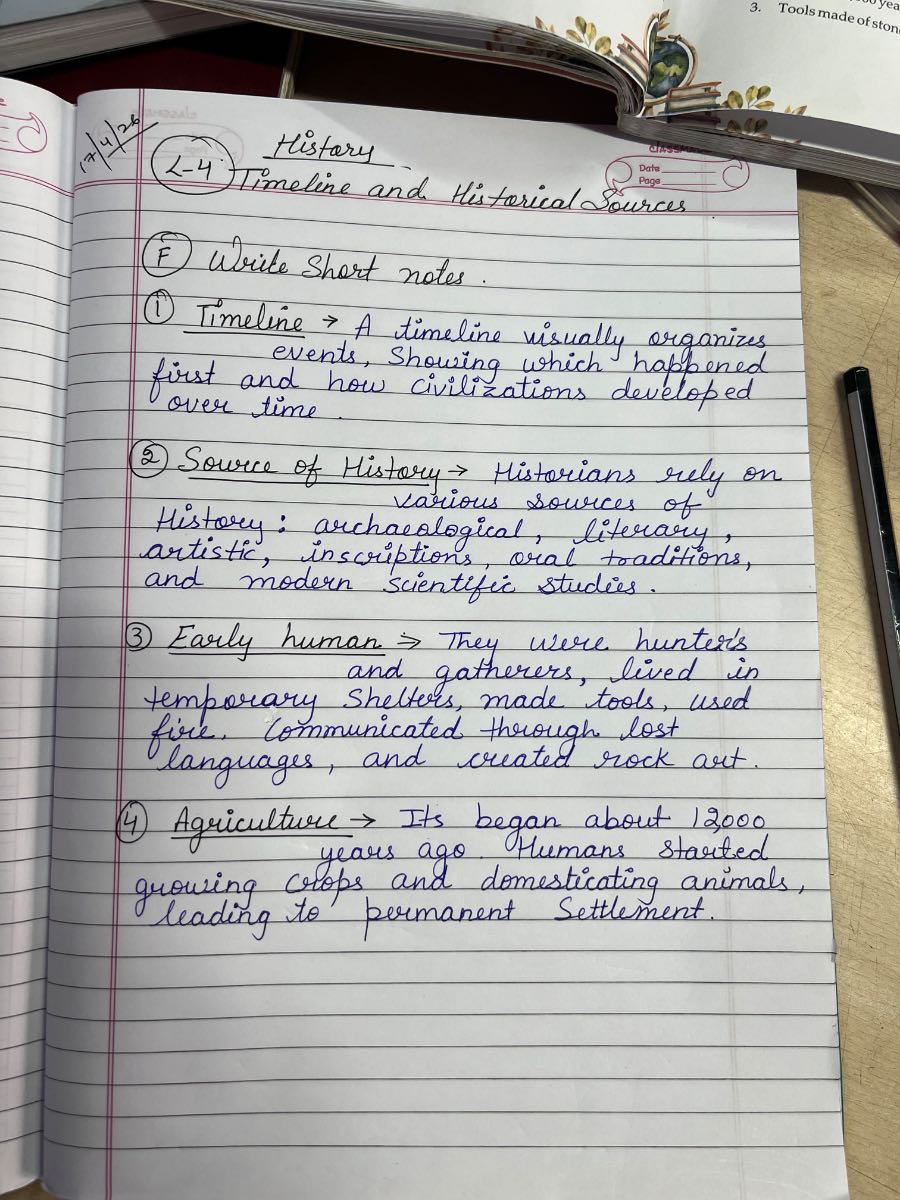 000 yea
3. Tools made of ston
17/4/26
History
L-4 Timeline and Historical Sources
CLASSM
Date
Page
F Write Short notes.
1 Timeline → A timeline visually organizes
events, Showing which happened
first and how civilizations developed
over time.
2 Source of History → Historians rely on
various sources of
History: archaeological, literary,
artistic, inscriptions, oral traditions,
and modern scientific studies.
3 Early human ⇒ They were hunter's
and gatherers, lived in
temporary Shelters, made tools, used
fire. Communicated through lost
languages, and created rock art.
4 Agriculture → Its began about 12,000
years ago. Humans started
growing crops and domesticating animals,
leading to permanent Settlement.